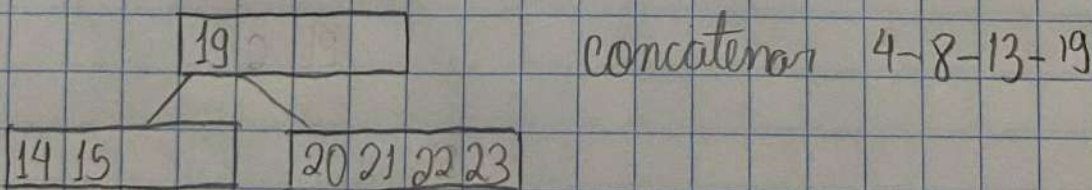 19 concatenar 4-8-13-19
14 15 20 21 22 23